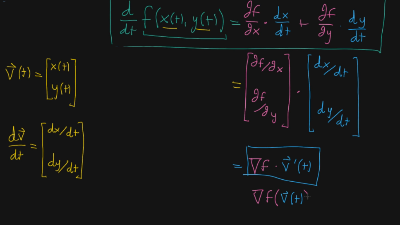 d/dt f(x(t), y(t)) = ∂f/∂x · dx/dt + ∂f/∂y · dy/dt
v⃗(t) = [x(t) y(t)]
= [∂f/∂x ∂f/∂y] · [dx/dt dy/dt]
dv⃗/dt = [dx/dt dy/dt]
= ∇f · v⃗'(t)
∇f(v⃗(t))